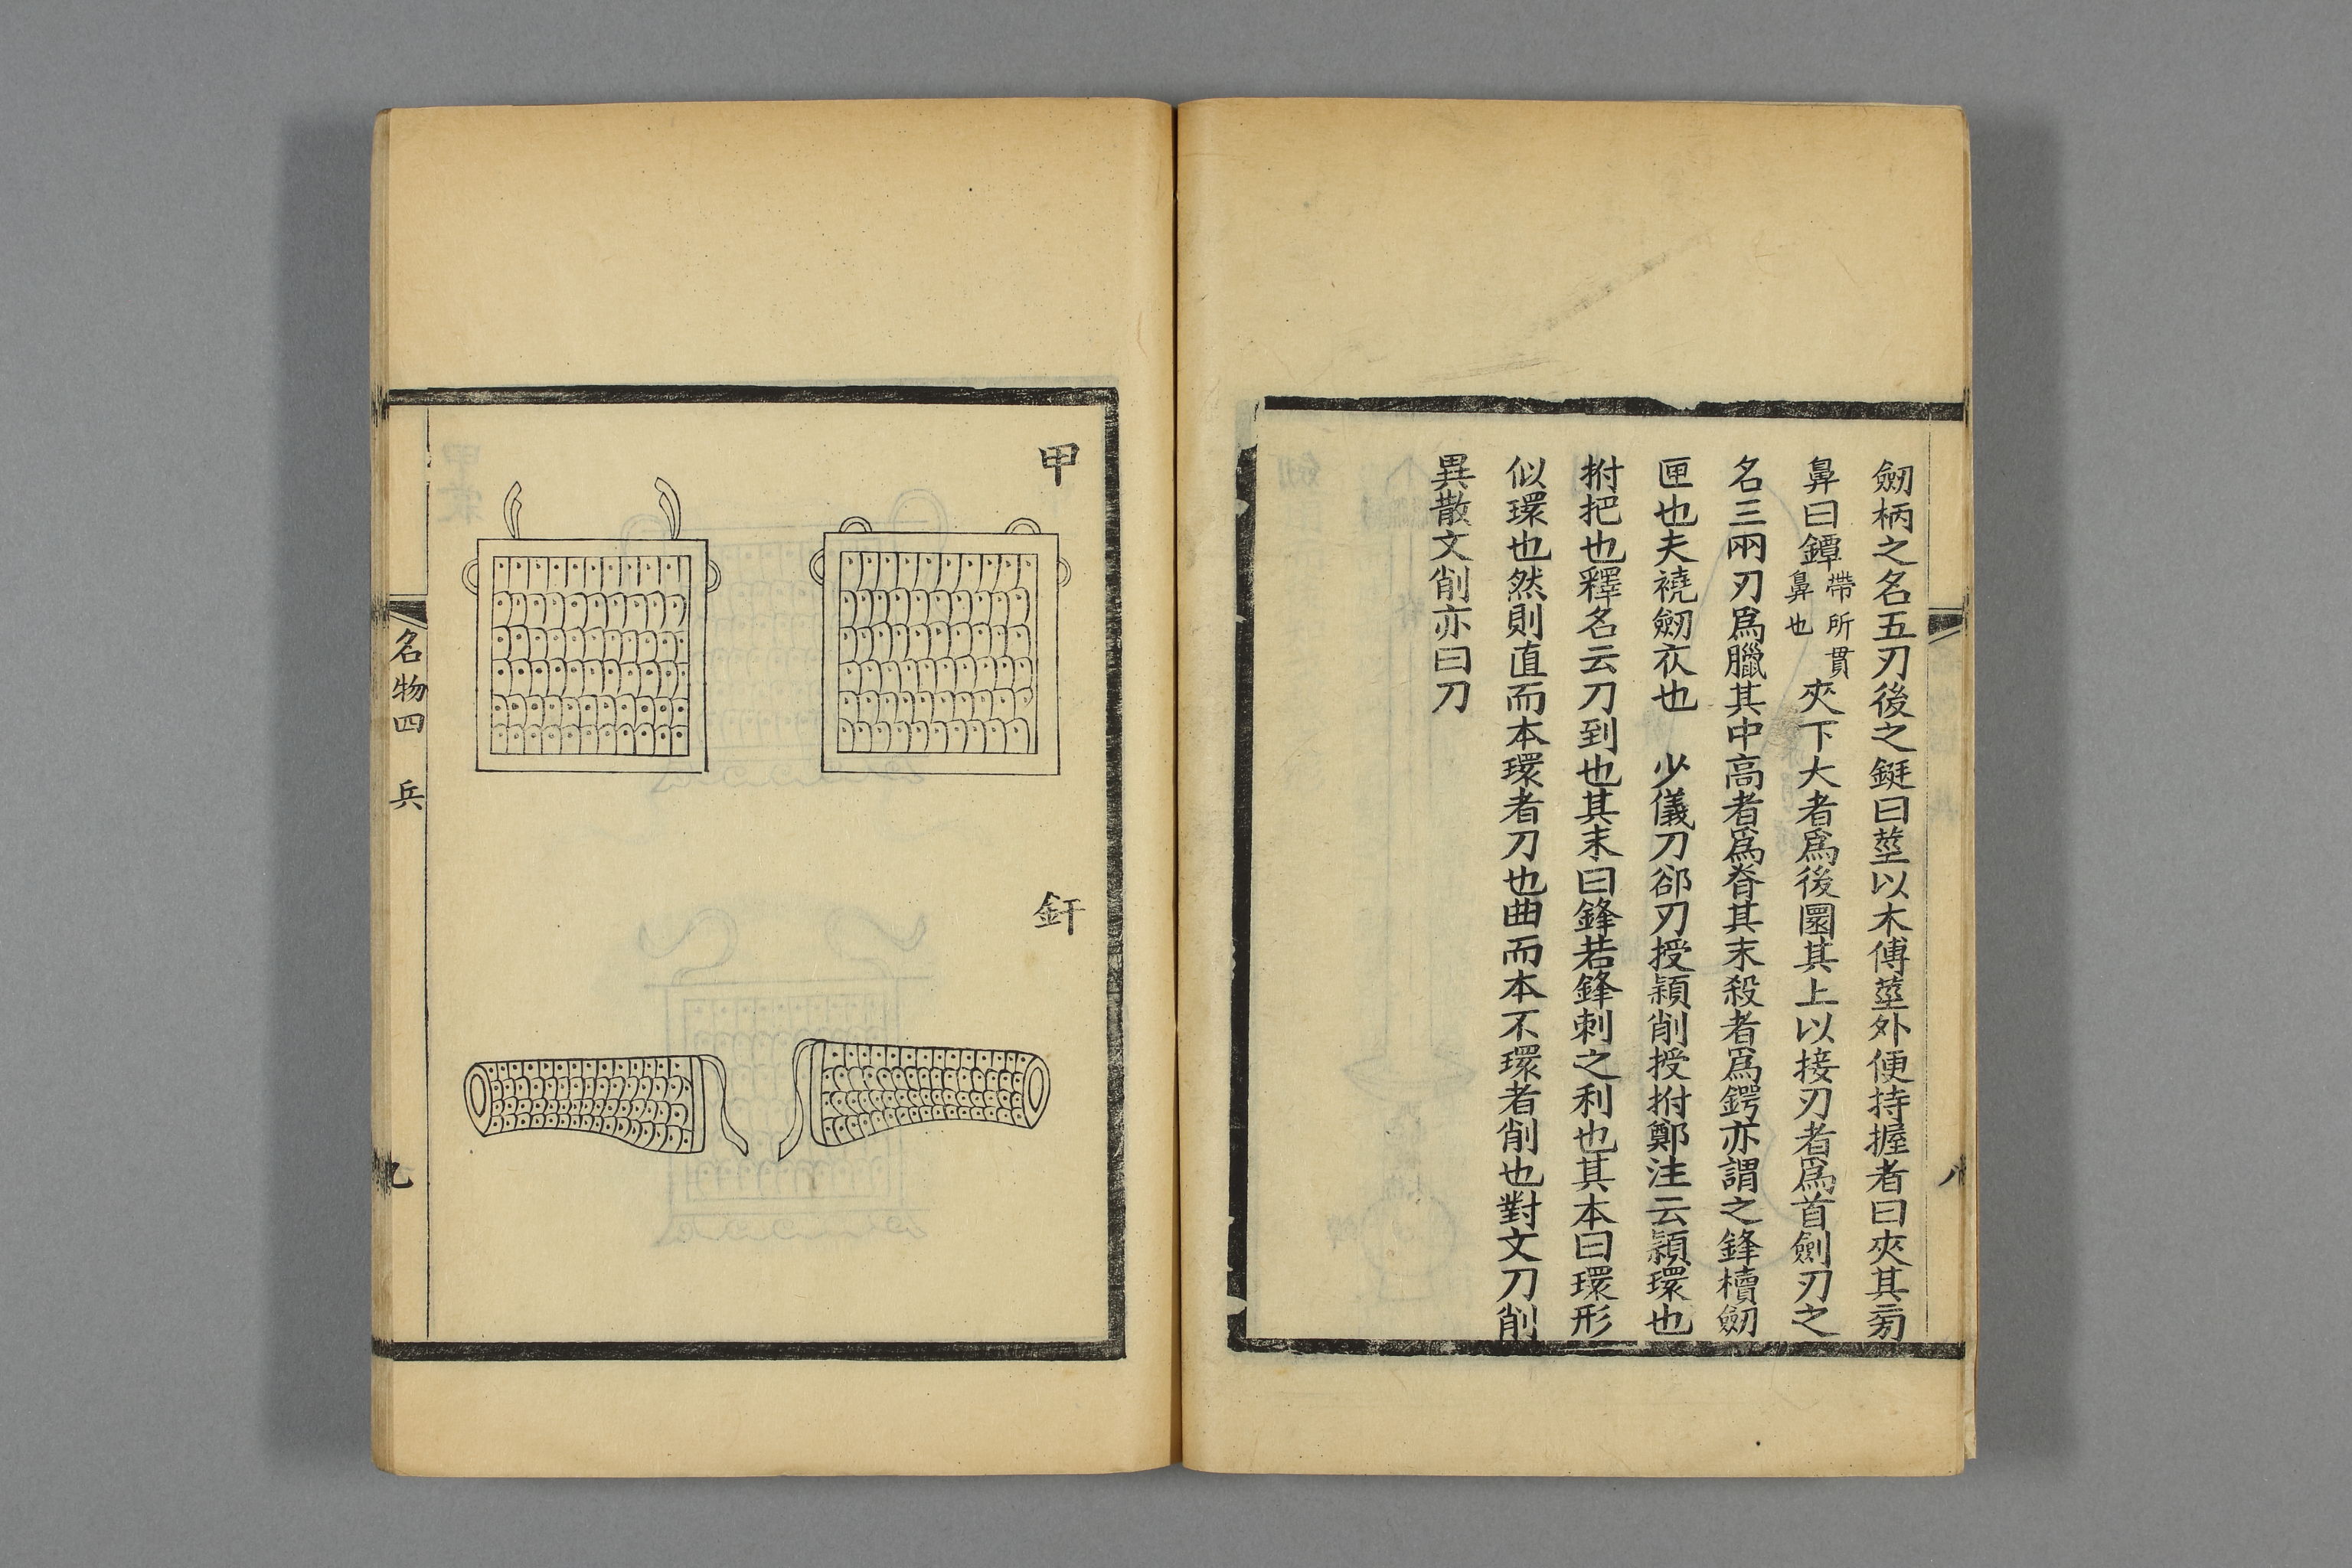 劒柄之名五刃後之鋌曰莖以木傅莖外便持握者曰夾其㫄
鼻曰鐔帶所貫鼻也夾下大者爲後圜其上以接刃者爲首劍刃之
名三兩刃爲臘其中高者爲脊其末殺者爲鍔亦謂之鋒櫝劒
匣也夫襓劒衣也　少儀刀卻刃授穎削授拊鄭注云穎環也
拊把也釋名云刀到也其末曰鋒若鋒刺之利也其本曰環形
似環也然則直而本環者刀也曲而本不環者削也對文刀削
異散文削亦曰刀
八
甲
釬
名物四　兵
九